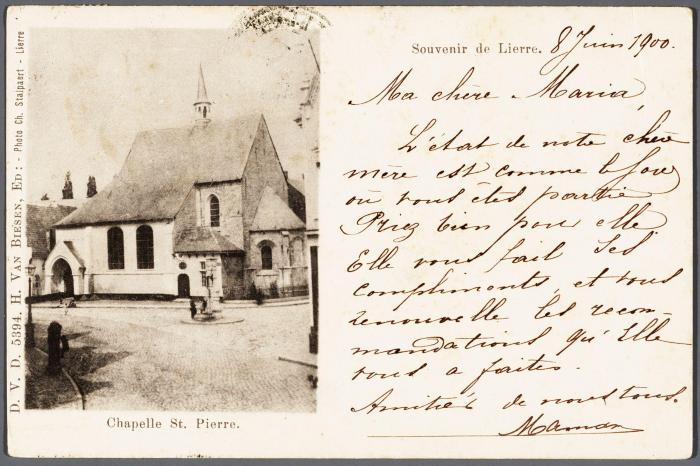 D. V. D. 5394. H. VAN BIESEN, ED: - Photo Ch. Stalpaert - Lierre
Chapelle St. Pierre.
Souvenir de Lierre. 8 Juin 1900.
Ma chère Maria,
L'état de notre chère
mère est comme le jour
où vous êtes partie
Priez bien pour elle
Elle vous fait ses
compliments, et vous
renouvelle les recom-
mandations qu'Elle
vous a faites.
Amitiés de nous tous.
Maman